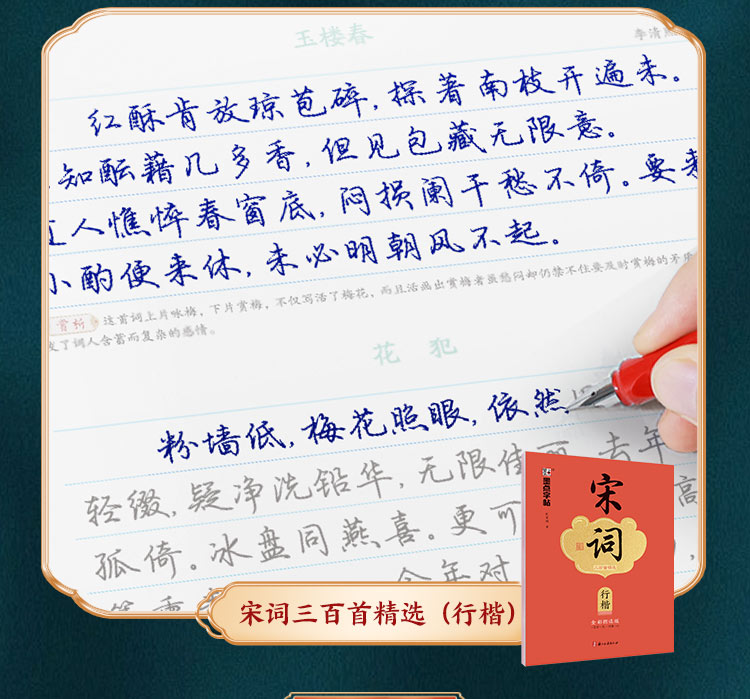 玉楼春
李清照
红酥肯放琼苞碎,探著南枝开遍未。
知酝藉几多香,但见包藏无限意。
人憔悴春窗底,闷损阑干愁不倚。要来
小酌便来休,未必明朝风不起。
赏析 这首词上片咏梅,下片赏梅,不仅写活了梅花,而且活画出赏梅者虽愁闷却仍禁不住要及时赏梅的矛盾
了词人含蓄而复杂的感情。
花犯
粉墙低,梅花照眼,依然
轻缀,疑净洗铅华,无限佳丽。去年
孤倚。冰盘同燕喜。更可 高
今年对
墨点字帖
宋词
行楷
宋词三百首精选(行楷)